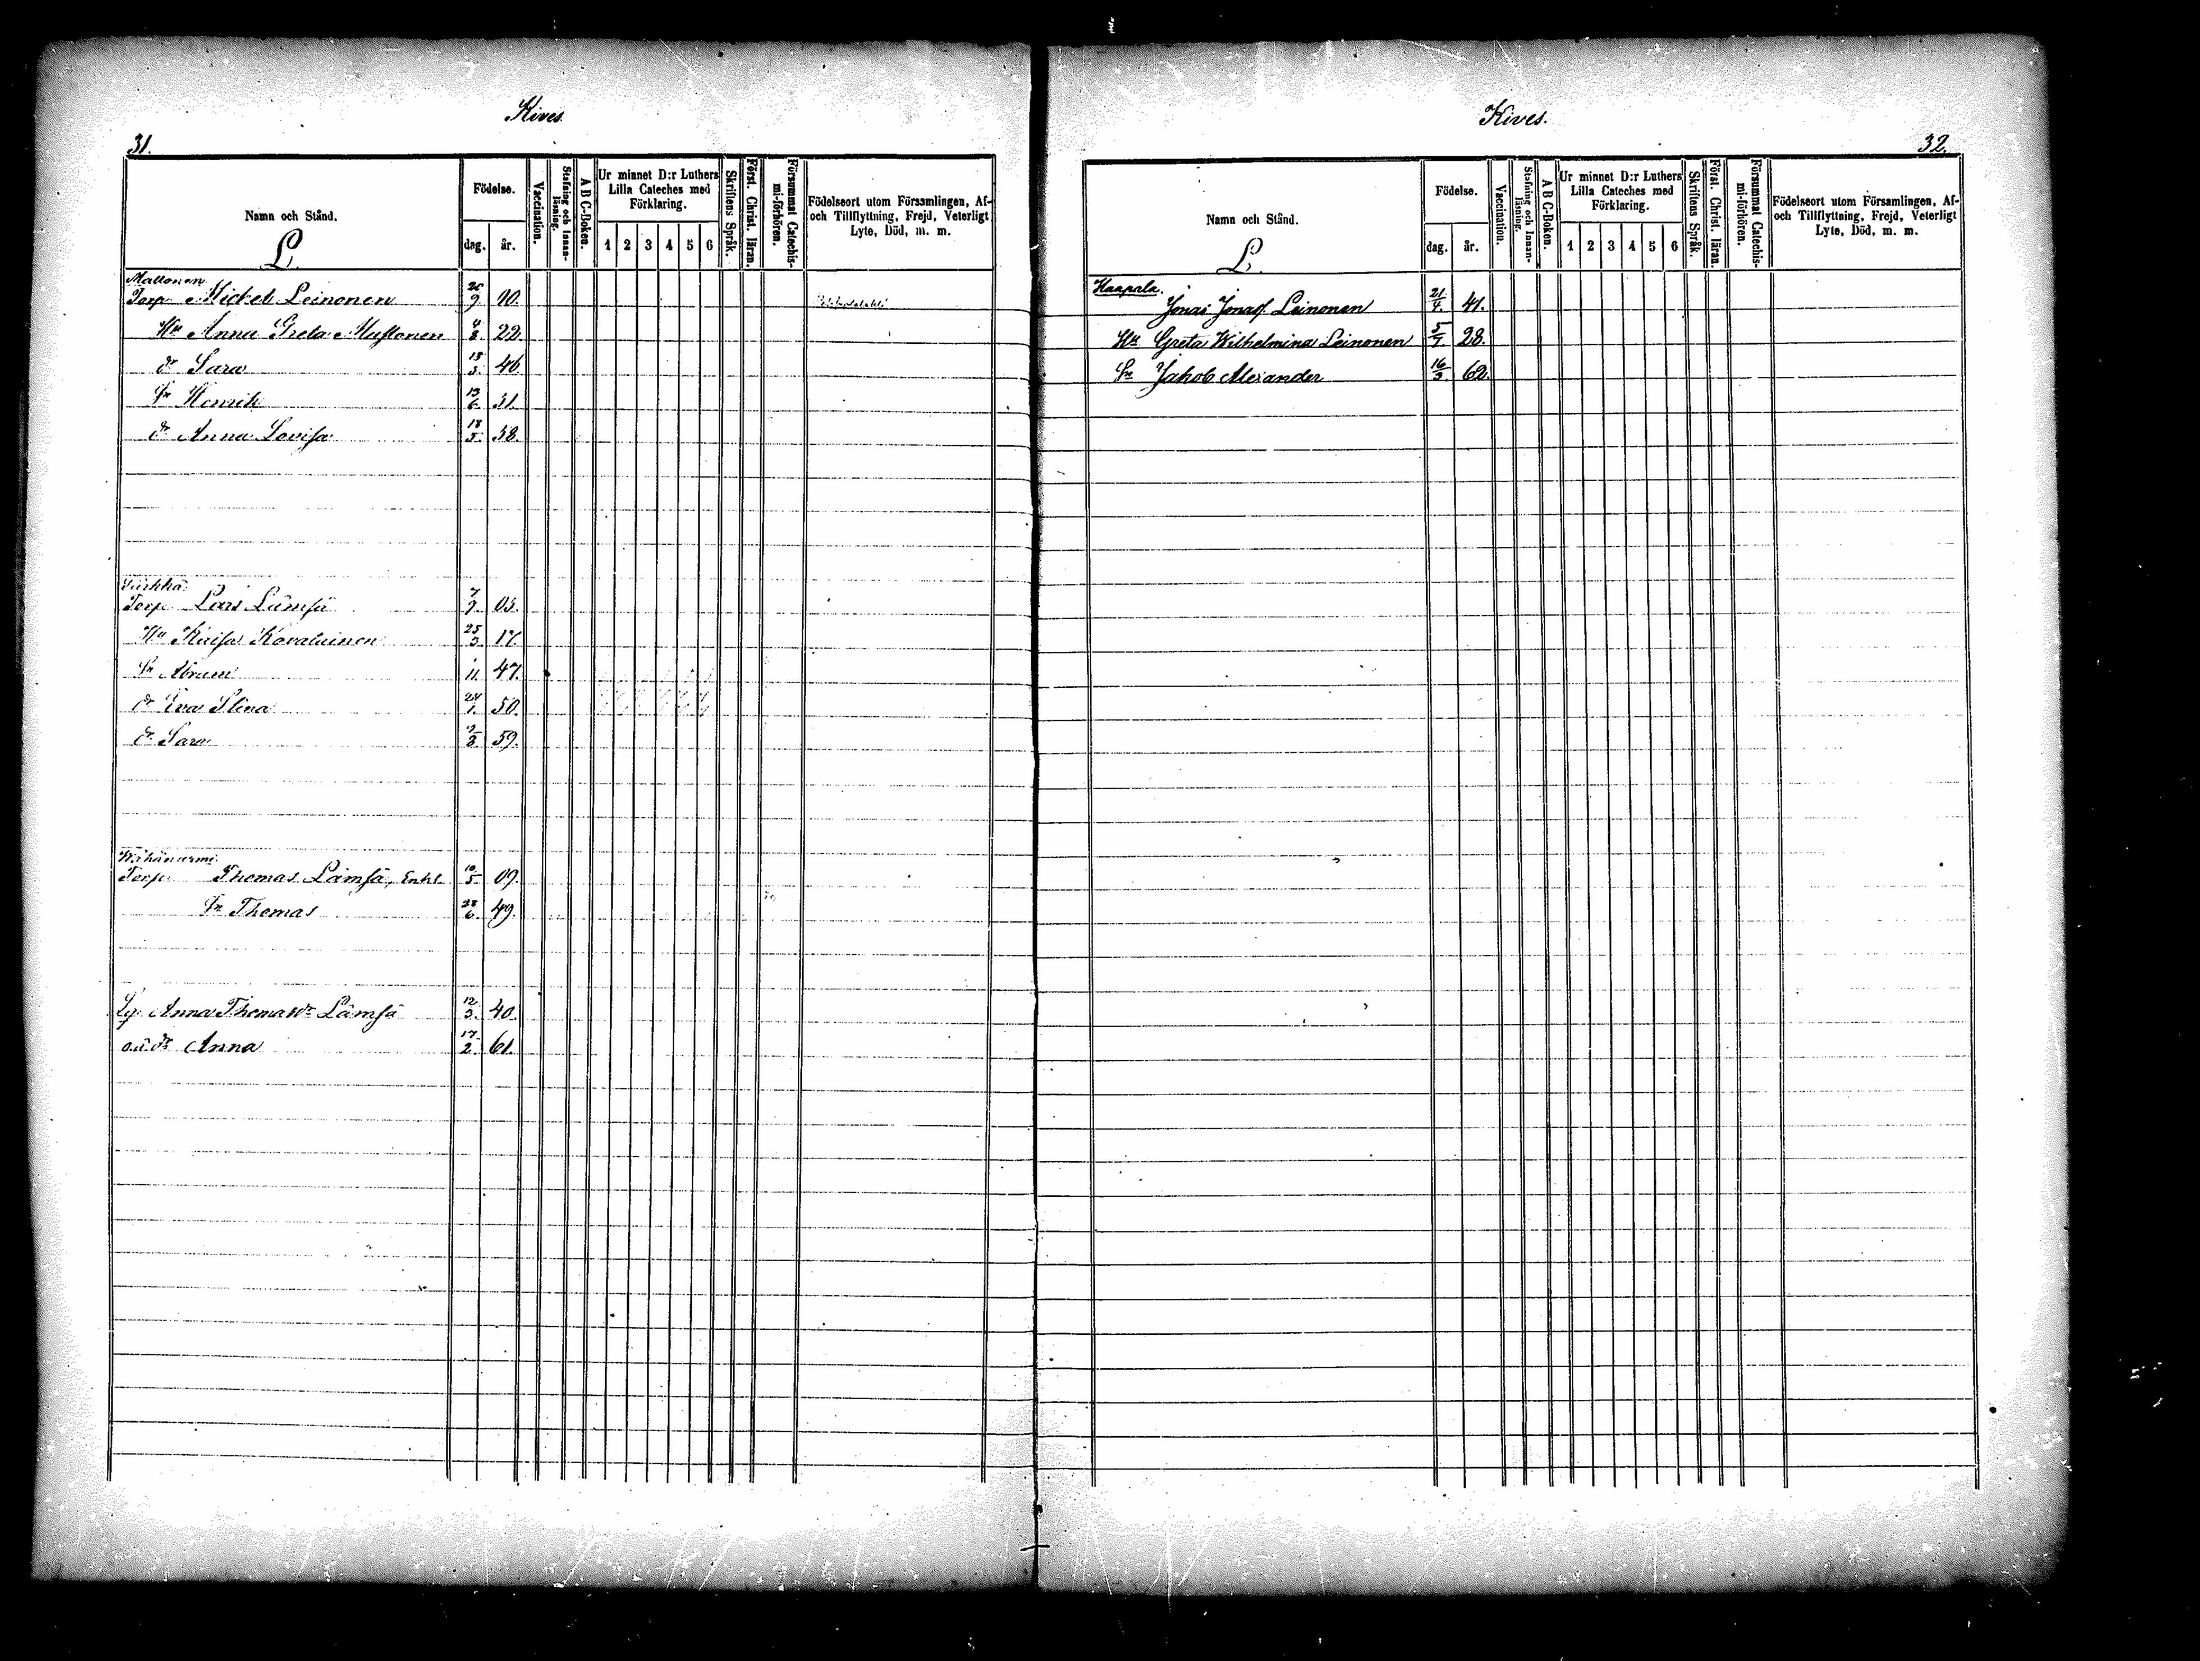 Kives.
31.
Namn och Stånd.
L.
Födelse.
dag. år.
Vaccination.
Stafning och Innan-läsning.
A B C-Boken.
Ur minnet D:r Luthers Lilla Cateches med Förklaring.
1 2 3 4 5 6
Skriftens Språk.
Först. Christ. läran.
Försummat Catechis-mi-förhören.
Födelseort utom Församlingen, Af- och Tillflyttning, Frejd, Veterligt Lyte, Död, m. m.
Torp. Mickel Leinonen 9. 10.
Hu Anna Greta Mustonen 4/8. 22.
dr Sara 46.
Sn Henrik 13/6. 31.
dr Anna Lovisa 18/5. 38.
Torp. Lars Lämsä 7/9. 05.
Hu Kaisa Kovalainen 25/3. 17.
Sn Abram 11. 47.
dr Eva Stina 24/1. 50.
dr Sara 59.
Torp. Thomas Lämsä, Enkl. 10/5. 09.
Sn Thomas 28/6. 49.
Anna Thomasdr Lämsä 12/3. 40.
o.ä. dr Anna 17/2. 61.
Kives.
32.
Namn och Stånd.
L.
Födelse.
dag. år.
Vaccination.
Stafning och Innan-läsning.
A B C-Boken.
Ur minnet D:r Luthers Lilla Cateches med Förklaring.
1 2 3 4 5 6
Skriftens Språk.
Först. Christ. läran.
Försummat Catechis-mi-förhören.
Födelseort utom Församlingen, Af- och Tillflyttning, Frejd, Veterligt Lyte, Död, m. m.
Haapala.
Jonas Jonass Leinonen 21/4. 41.
Hu Greta Wilhelmina Leinonen 5/7. 28.
Sn Jakob Alexander 16/3. 62.